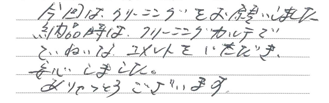 今回は、クリーニングをお願いしました
納品時は、クリーニングカルテで
ていねいなコメントをいただき、
安心しました。
ありがとうございます。